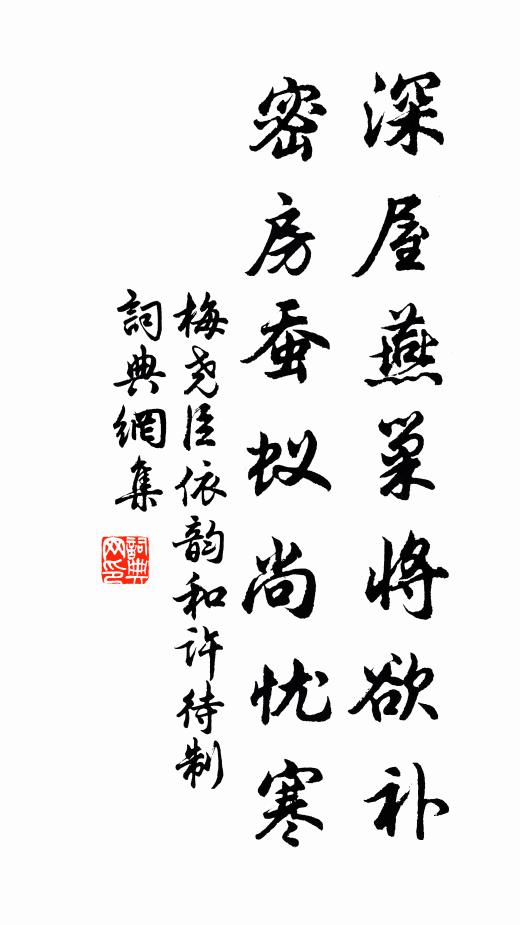 深屋燕巢将欲补
密房蚕蚁尚忧寒
梅尧臣依韵和许待制
詞典網集
詞典
网印